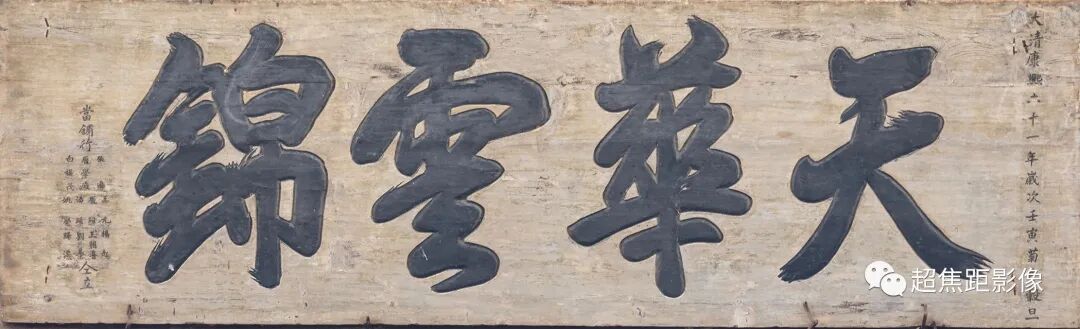 大清康熙六十一年歲次壬寅菊
穀旦
天華雲錦
當鋪行
仝立
超焦距影像